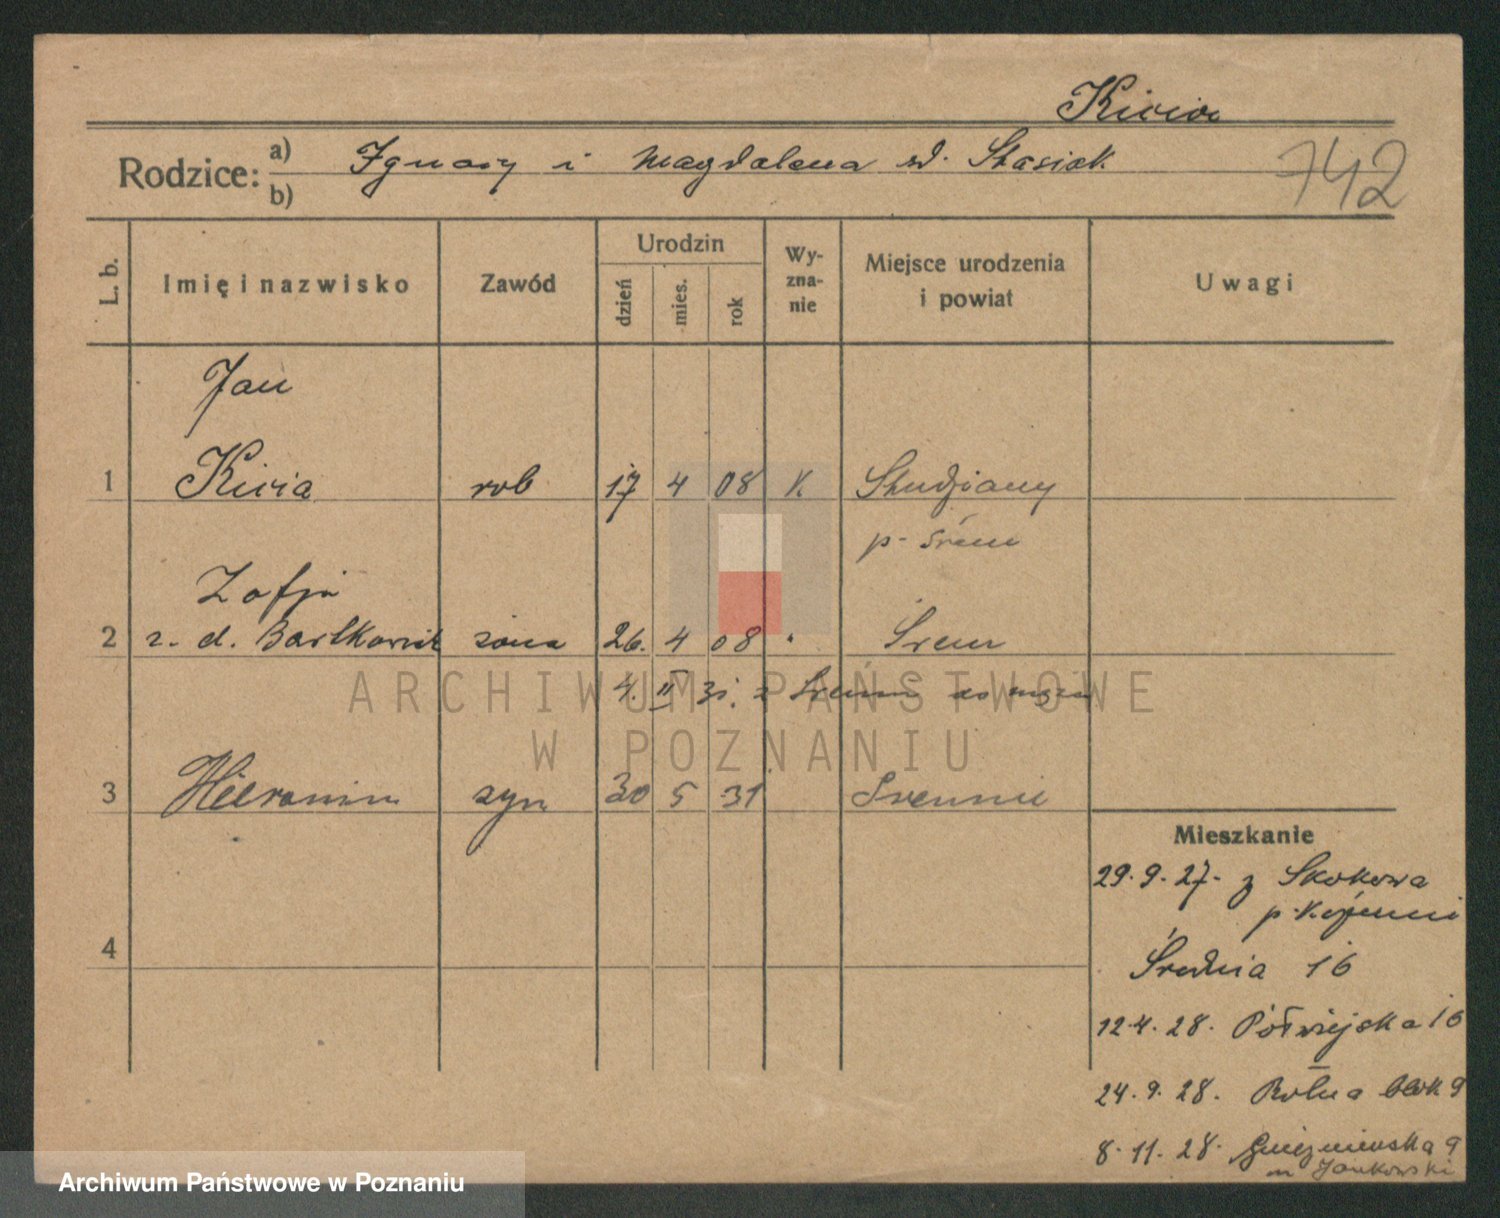 Kicia
Rodzice: a) b) Ignacy i Magdalena ud. Stasiak 742
L. b. Imię i nazwisko Zawód Urodzin dzień mies. rok Wy-zna-nie Miejsce urodzenia i powiat Uwagi
Jan
1 Kicia rob 17 4 08 K. Studziany
p- Śrem
Zofja
2 z. d. Bartkowiak żona 26. 4 08 " Śrem
4. II 31. z Śremu do męża
3 Hieronim syn 30 5 31 Śremie
Mieszkanie
29.9.27- z Skokowa
4
Średnia 16
12.4.28. Półwiejska 16
24.9.28. Rolna blok 9
8.11.28. Gnieźnieńska 9
m Jankowski
ARCHIWUM PAŃSTWOWE
W POZNANIU
Archiwum Państwowe w Poznaniu